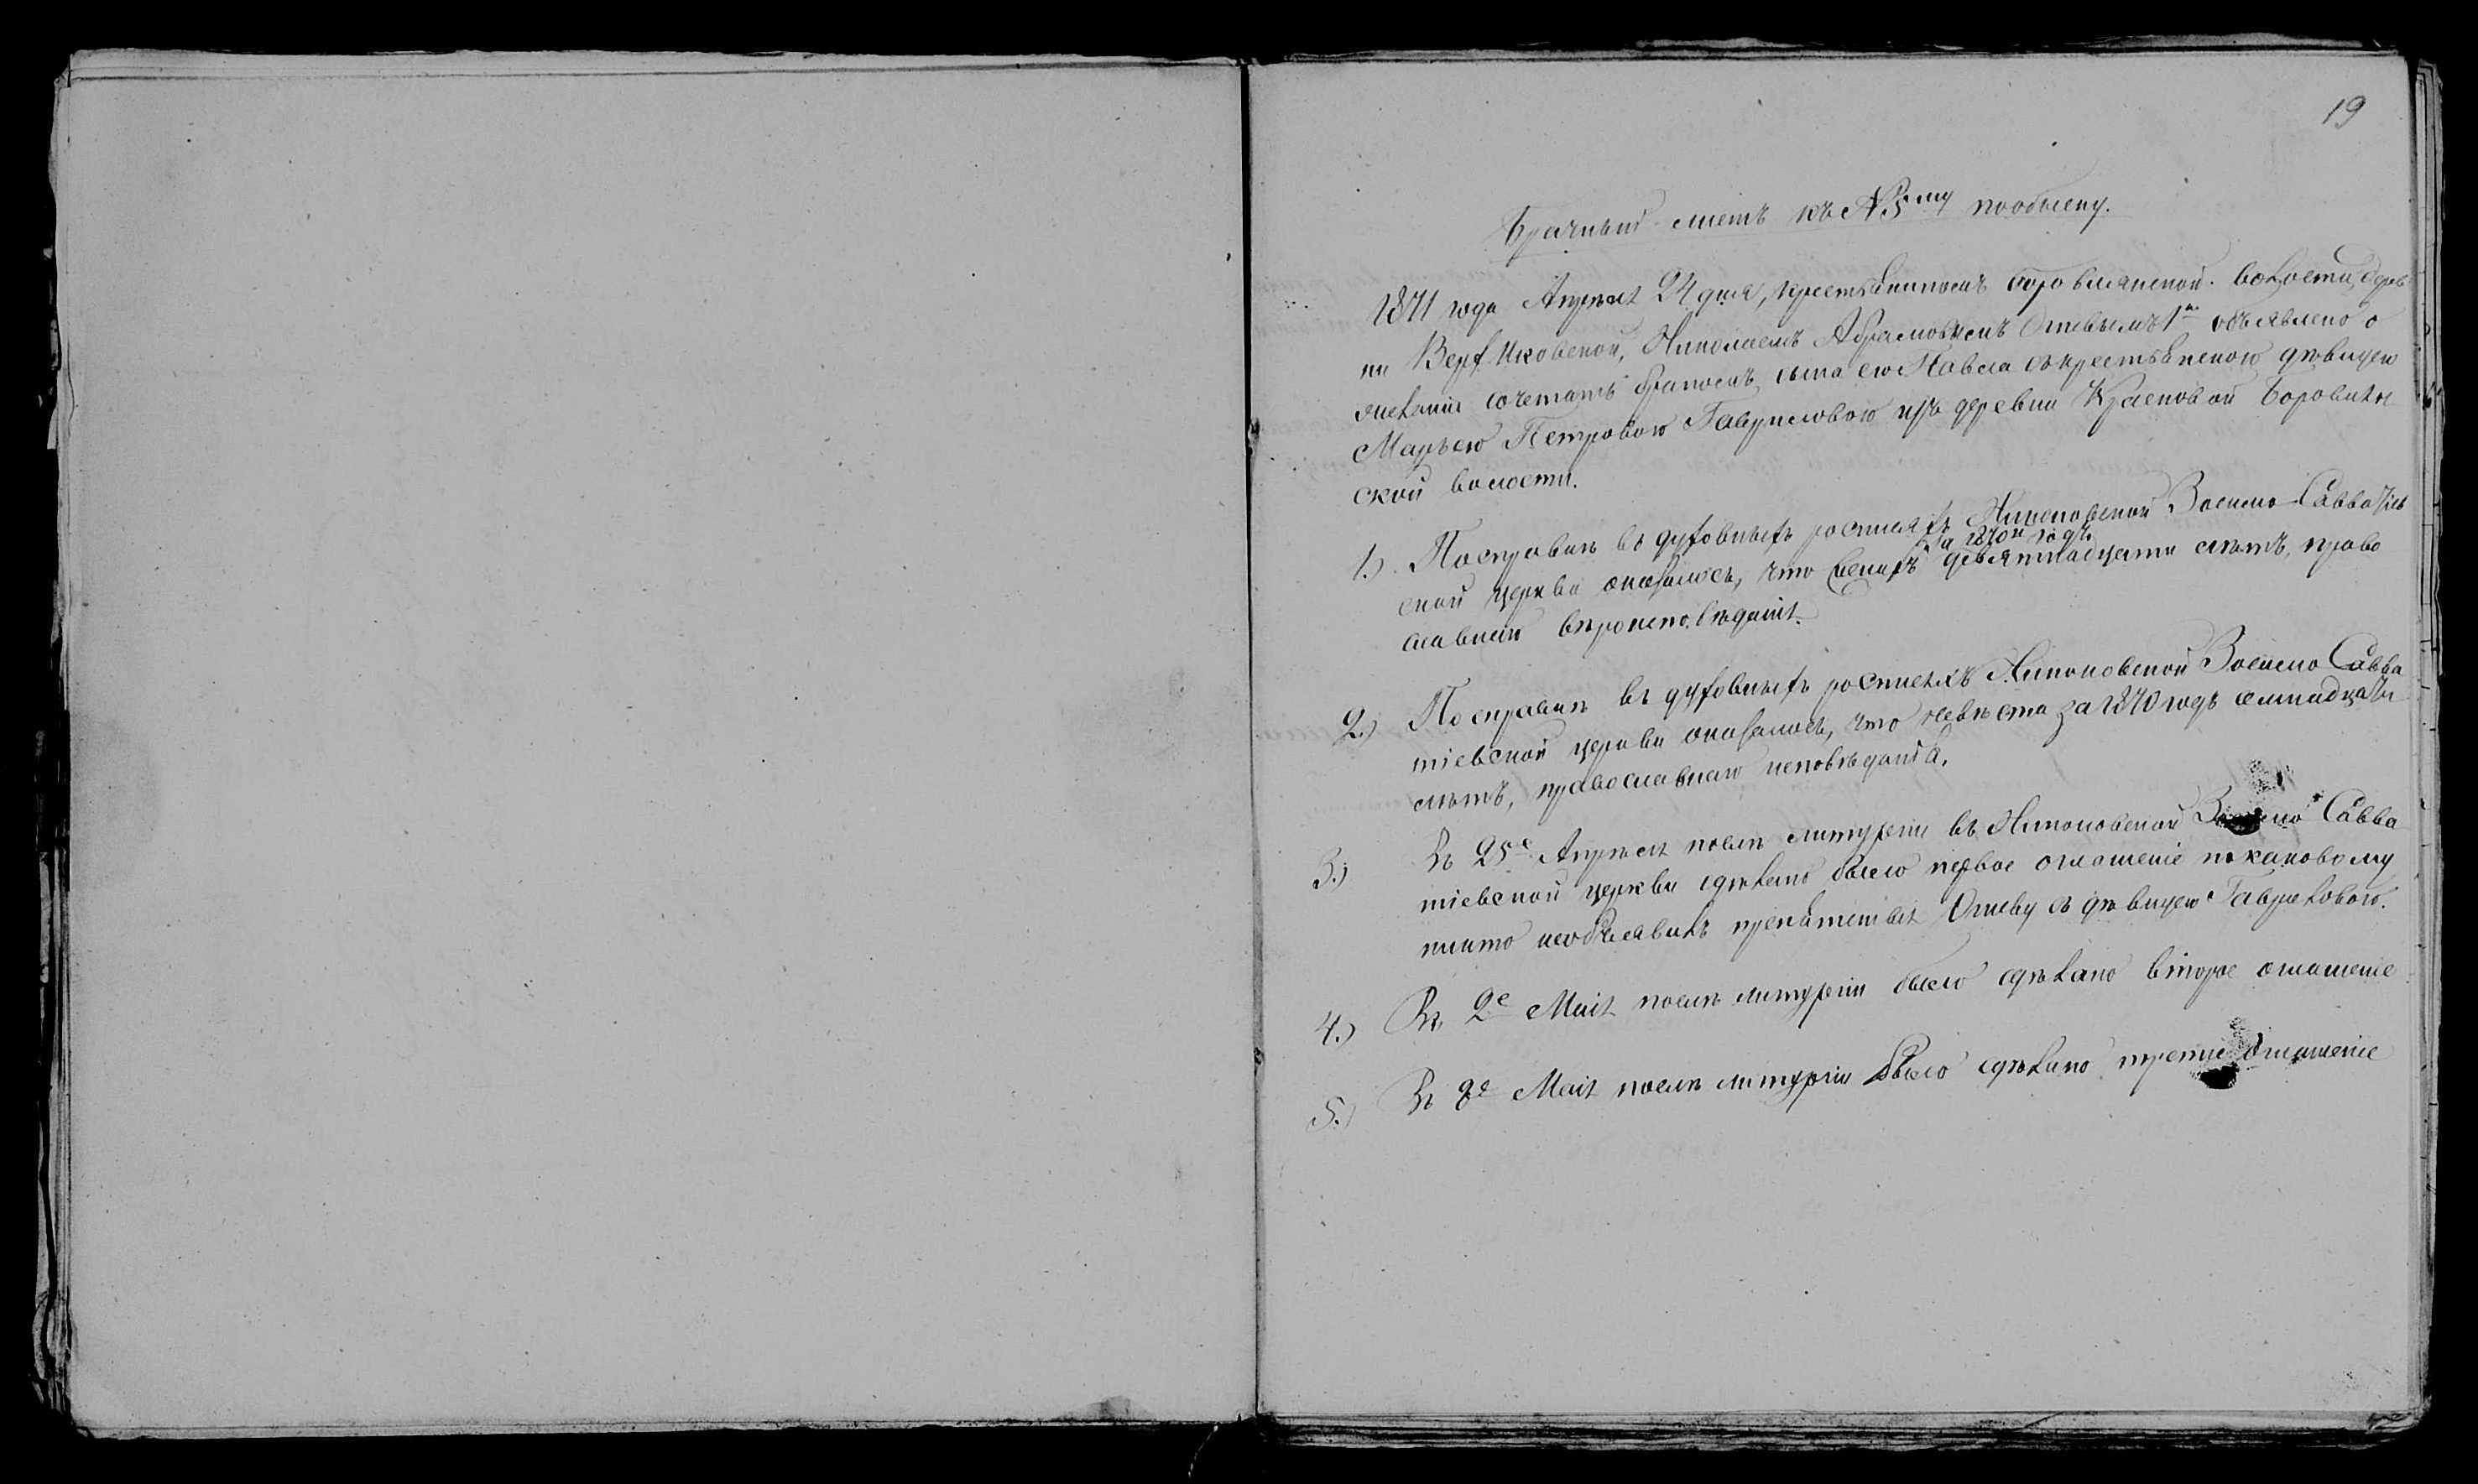 19
Брачный листъ къ №5му по обыску.
1871 года Апрѣля 24 дня, крестьяниномъ Боровлянской волости, дерев
ни Верх-Иковской, Николаемъ Абрамовымъ Огневымъ 1мъ объявлено о
желаніи сочетать бракомъ сына его Павла съ крестьянскою дѣвицею
Марьею Петровою Гавриловою изъ деревни Красновой Боровлян
ской волости.
1.) По справкѣ въ духовныхъ росписяхъ Зосимо-Савватіев
за 1870й годъ
ской церкви оказалось, что женихъ девятнадцати лѣтъ, право
славнаго вѣроисповѣданія.
2.) По справкѣ въ духовныхъ росписяхъ Зосимо Савва
тіевской церкви оказалось, что невѣста за 1870 годъ семнадцати
лѣтъ, православнаго исповѣданія.
3.) Въ 25е Апрѣля послѣ литургіи въ Зосимо Савва
тіевской церкви сдѣлано было первое оглашеніе по каковому
никто необъявилъ препятствія Огневу съ дѣвицею Гавриловою.
4.) Въ 2е Мая послѣ литургіи было сдѣлано второе оглашеніе
5.) Въ 9е Мая послѣ литургіи было сдѣлано третие оглашеніе